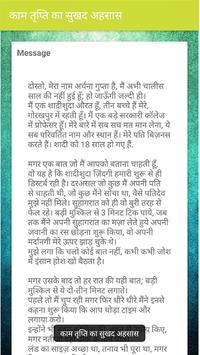 काम तृप्ति का सुखद अहसास
Message
दोस्तो, मेरा नाम अर्चना गुप्ता है, मैं अभी चालीस
साल की नहीं हुई हूँ; हो जाऊँगी जल्दी ही।
मैं एक शादीशुदा औरत हूँ, तीन बच्चे हैं मेरे,
गोरखपुर में रहती हूँ। मैं एक बड़े सरकारी कॉलेज
में प्रोफेसर हूँ। मेरे बारे में सब सच मत मान लेना, ये
सब परिवर्तित नाम और स्थान हैं। मेरे पति बिज़नस
करते हैं। शादी को 18 साल हो गए हैं.
मगर एक बात जो मैं आपको बताना चाहती हूँ,
वो यह है कि शादीशुदा ज़िंदगी हमारी शुरू से ही
डिस्टर्ब रही है। दरअसल जो कुछ मैं अपनी पति
से चाहती थी, जो कुछ मैंने सोचा था, वैसे पति देव
मुझे नहीं मिले। सुहागरात को ही वो दो बार सेक्स
बड़ी मुश्किल से 3 मिनट टिक पाये, जब
तक मैंने अपनी सुहागरात का मज़ा लेते हुये अपनी
जवानी का रस छोड़ना शुरू किया, वो अपनी
मर्दानगी मेरे ऊपर झाड़ चुके थे।
मुझे लगा कि चलो कोई बात नहीं, कभी कभी जोश
में इंसान खो बैठता है।
मगर उसके बाद तो हर रात की यही बात; बड़ी
मुश्किल से ये दो-तीन मिनट लगाते।
पहले तो मैं चुप रही मगर फिर धीरे धीरे मैंने इनसे
कहना शुरू किया कि अपना इलाज करवाओ।
इन्होंने भी
काम तृप्ति का सुखद अहसास
लंड का साइज़ अच्छा था, तनाव भी पूरा था, मगर